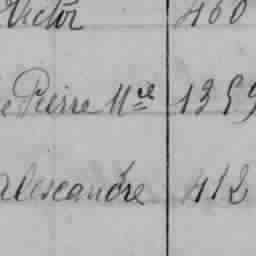 Victor 460
e Pierre Mre 1359
alexandre 412